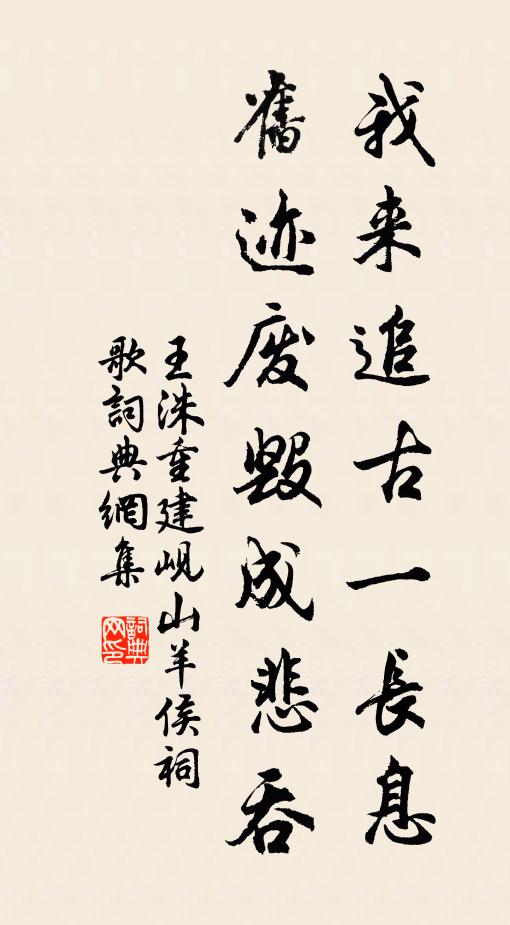 我来追古一長息
舊迹废毁成悲吞
王洙重建岘山羊侯祠
歌詞典網集
詞典网印